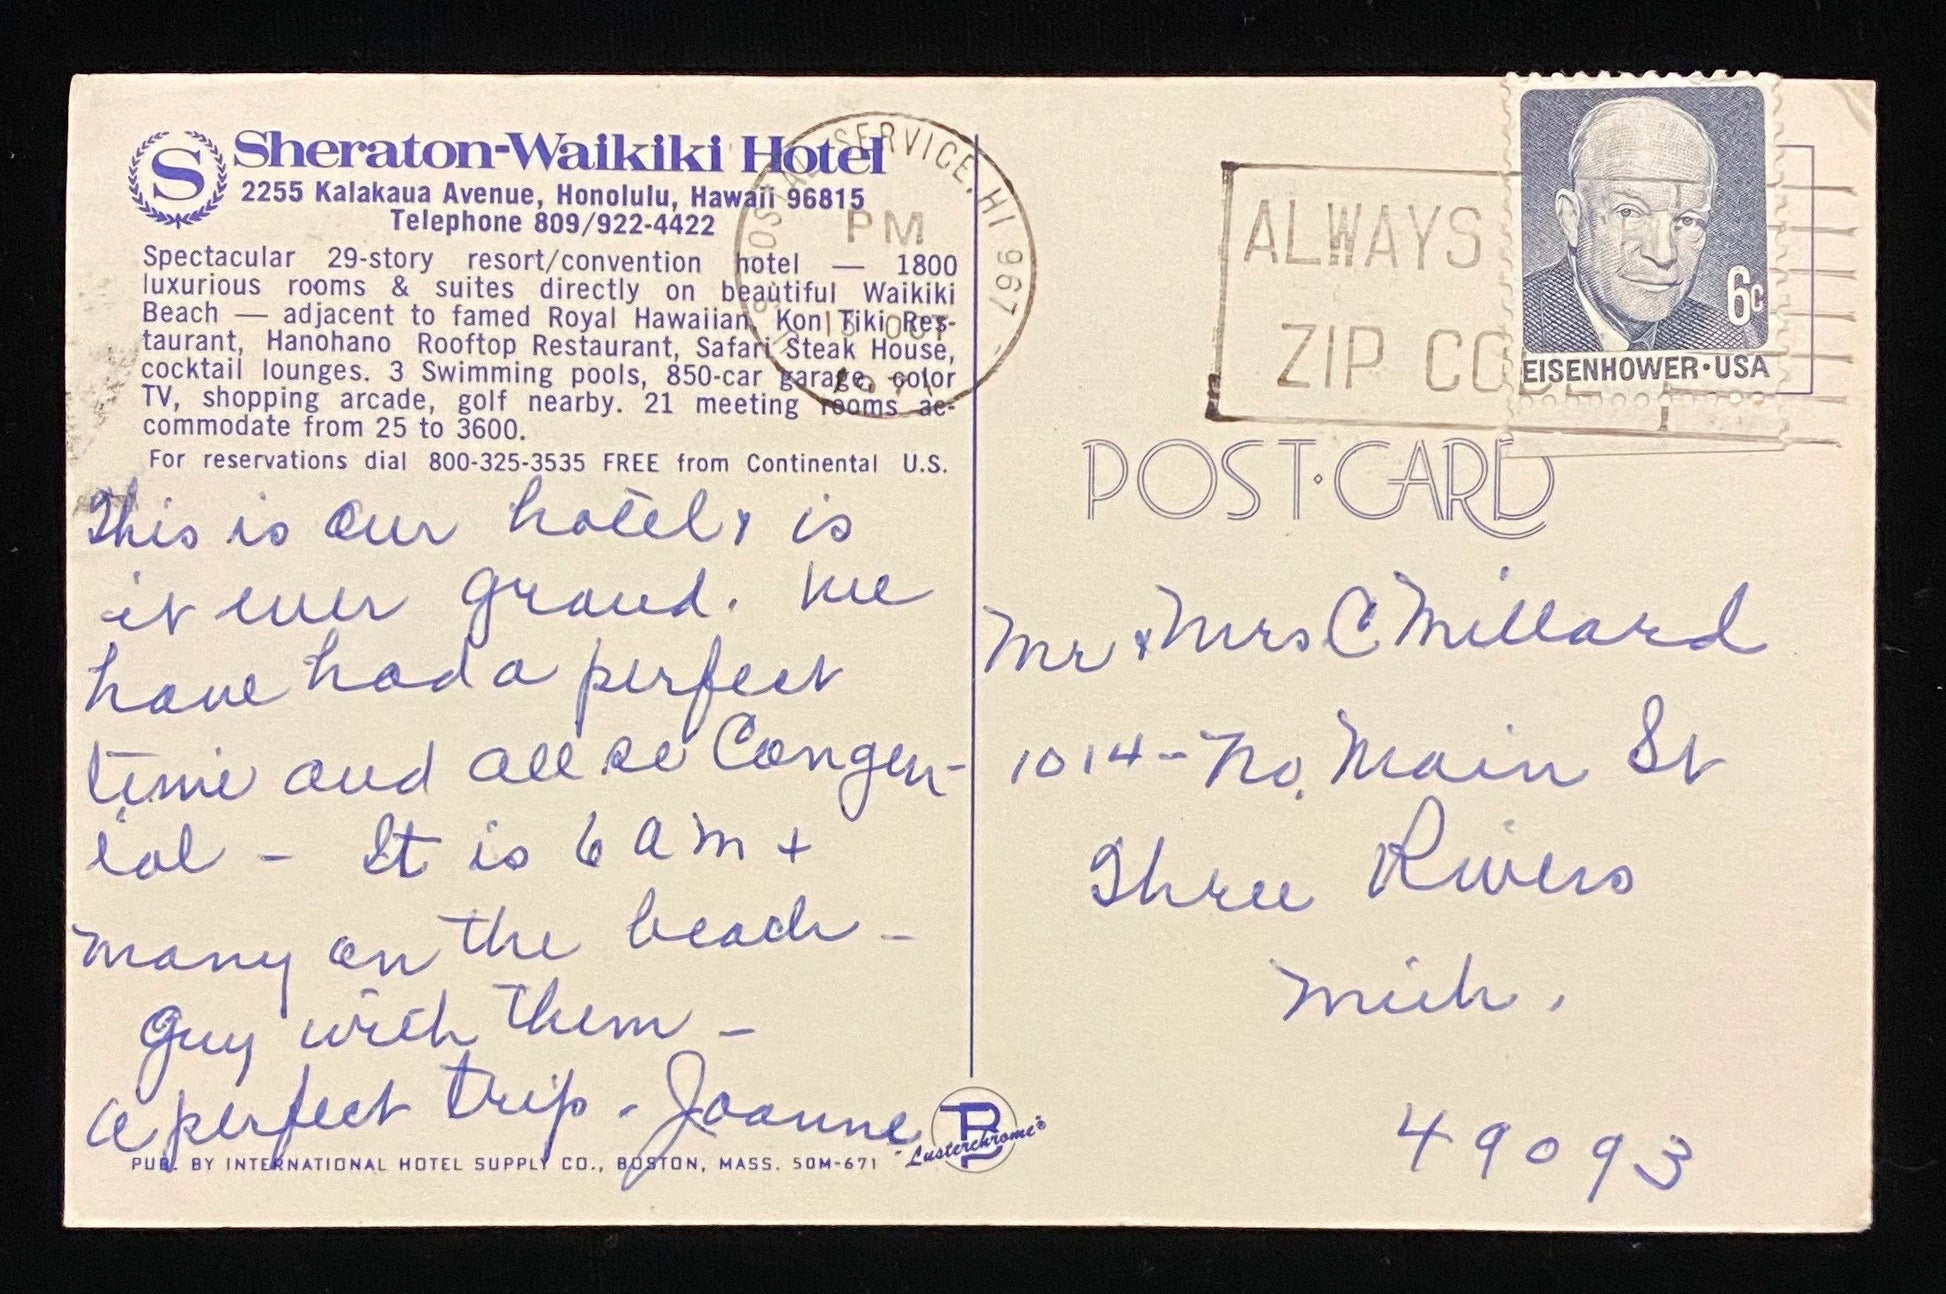 S Sheraton-Waikiki Hotel
2255 Kalakaua Avenue, Honolulu, Hawaii 96815
Telephone 809/922-4422
Spectacular 29-story resort/convention hotel — 1800
luxurious rooms & suites directly on beautiful Waikiki
Beach — adjacent to famed Royal Hawaiian, Kon Tiki Res-
taurant, Hanohano Rooftop Restaurant, Safari Steak House,
cocktail lounges. 3 Swimming pools, 850-car garage, color
TV, shopping arcade, golf nearby. 21 meeting rooms ac-
commodate from 25 to 3600.
For reservations dial 800-325-3535 FREE from Continental U.S.
This is our hotel & is
it ever grand. We
have had a perfect
time and all so Congen-
ial - It is 6 am +
many on the beach -
Guy with them -
a perfect trip - Joanne
PUB. BY INTERNATIONAL HOTEL SUPPLY CO., BOSTON, MASS. 50M-671
"Lusterchrome"®
POSTAL SERVICE, HI 967
PM
OCT
ALWAYS
ZIP CO
6c
EISENHOWER·USA
POST·CARD
Mr & Mrs C Millard
1014 - No. Main St
Three Rivers
Mich.
49093